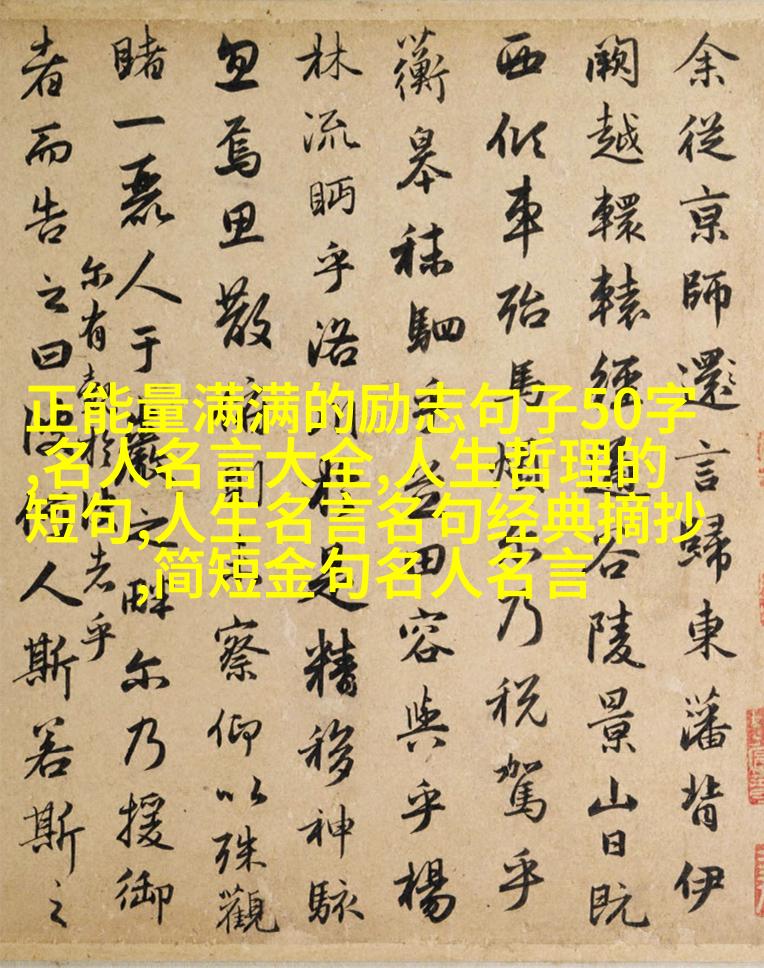 余從京師還言歸東藩背伊
闕越轘轅經通谷陵景山日既
西傾車殆馬煩尔乃税駕乎
蘅皋秣駟乎芝田容與乎楊
林流眄乎洛是精移神駭
忽焉思散俯則未察仰以殊觀
睹一麗人于巖之畔尔乃援御
者而告之曰人斯若斯之
尔有於者乎
正能量满满的励志句子50字
,名人名言大全,人生哲理的
短句,人生名言名句经典摘抄
,简短金句名人名言